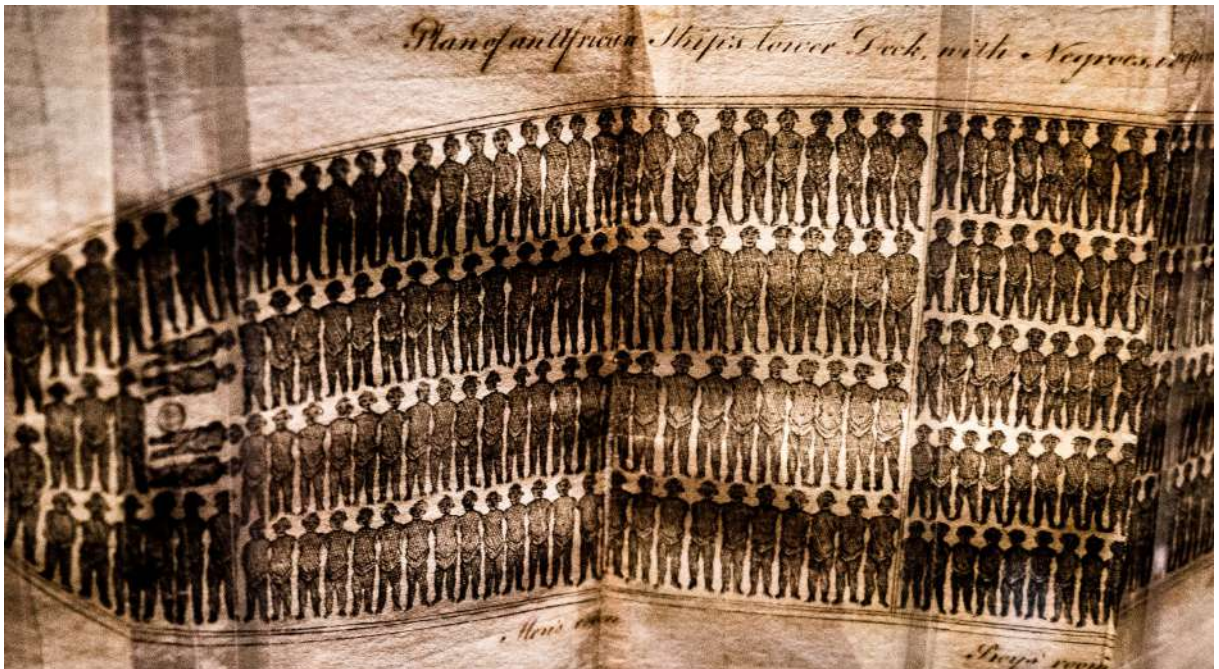 Plan of an African Ship's lower Deck, with Negroes, in
Men's room
Boys' room